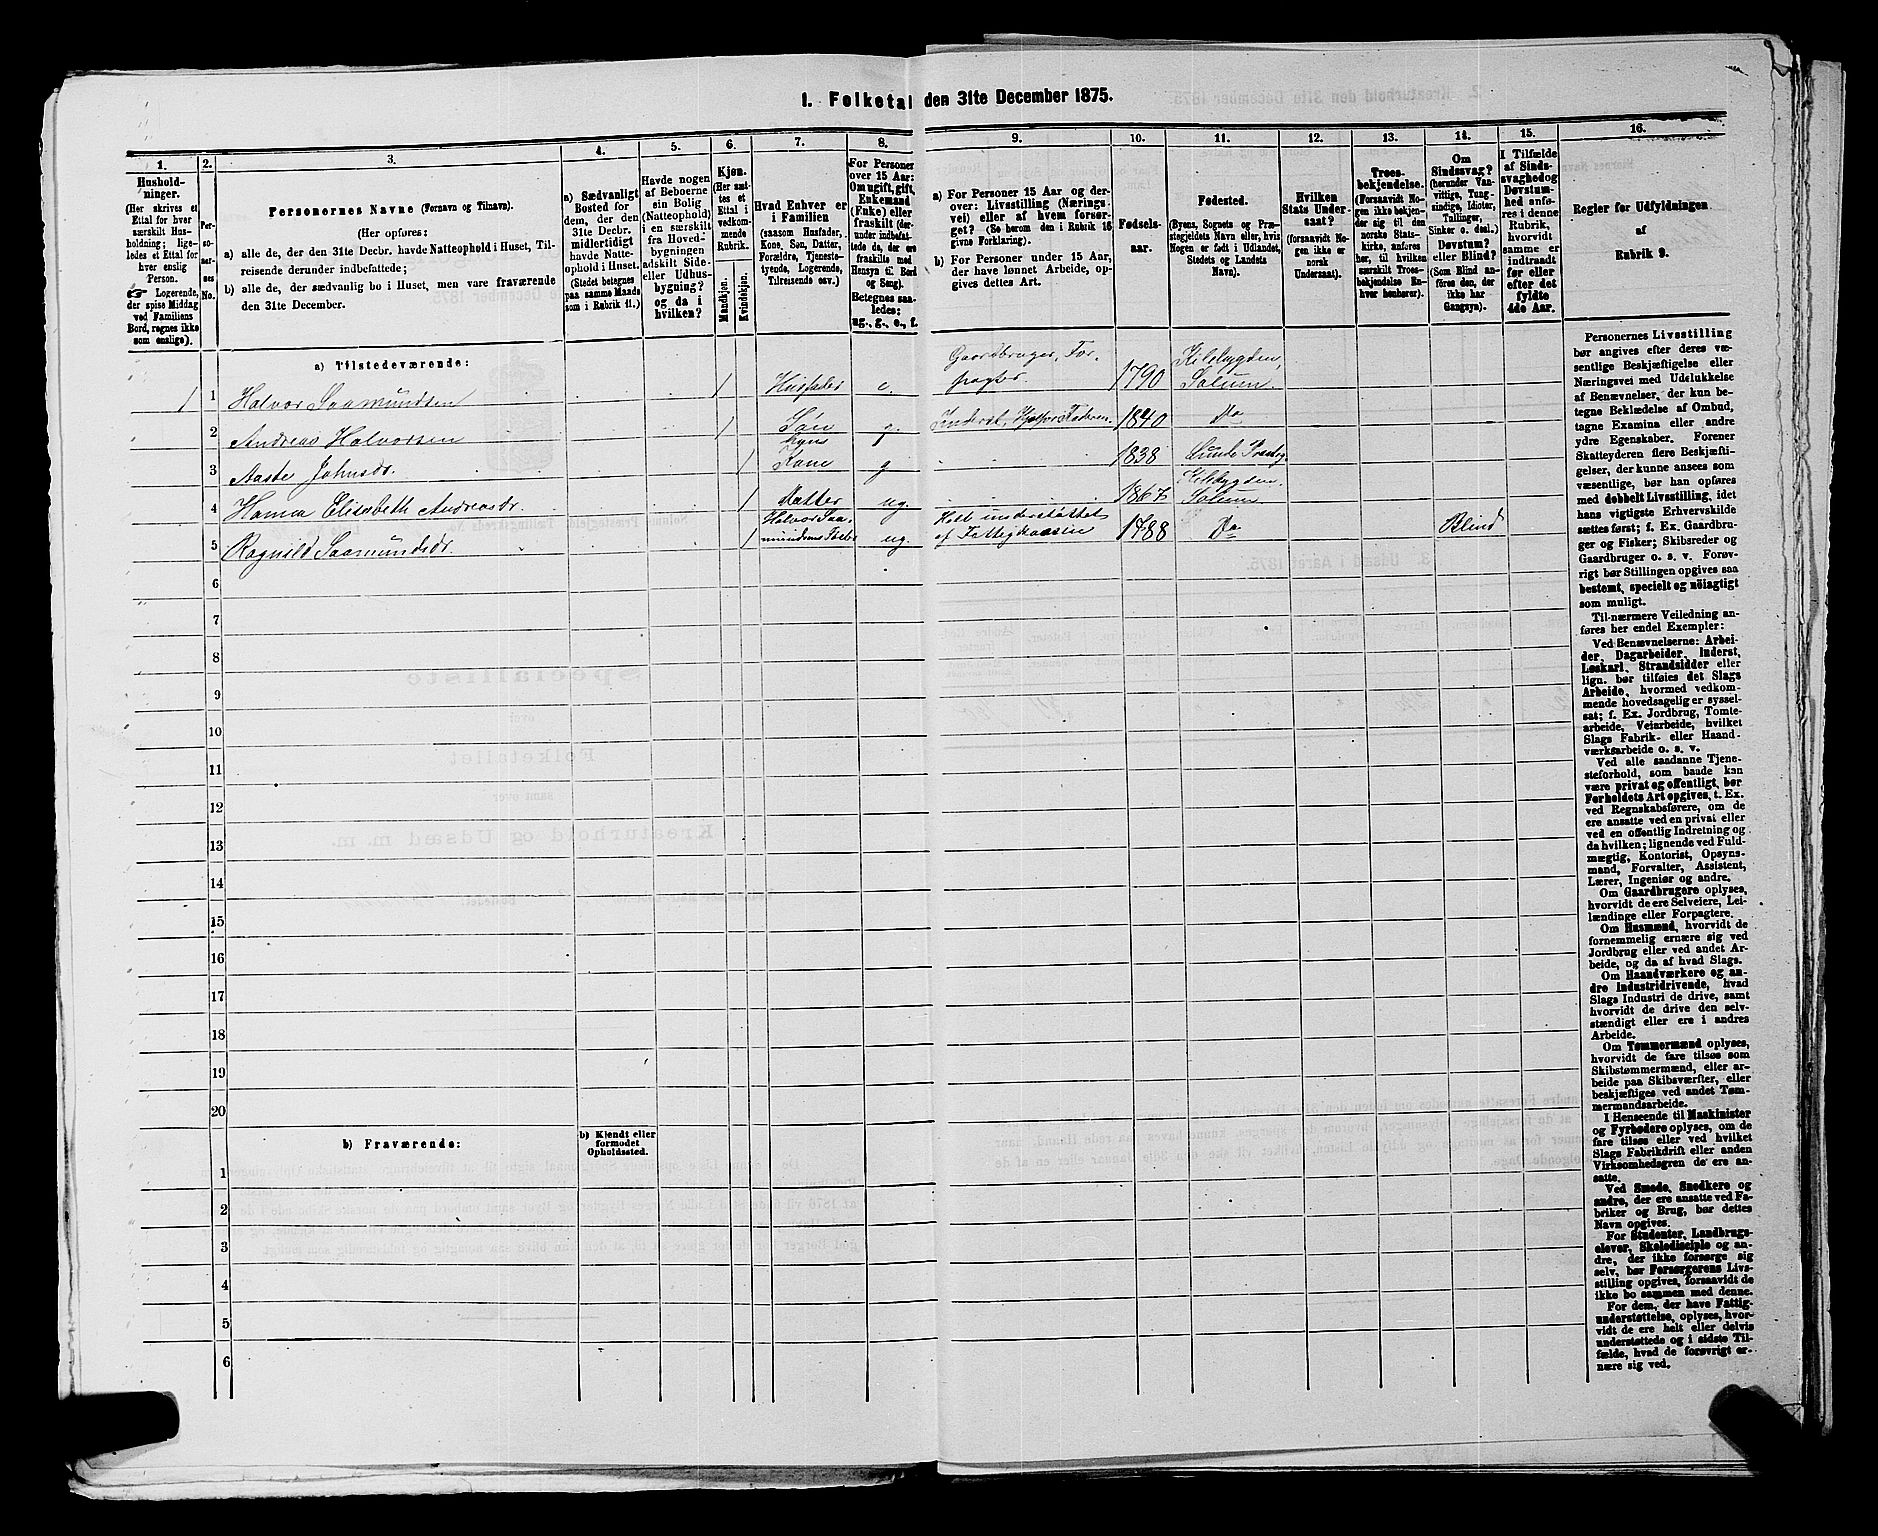 1. Folketal den 31te December 1875.
1.
2.
3.
4.
5.
6.
7.
8.
9.
10.
11.
12.
13.
14.
15.
16.
Hushold-
ninger.
(Her skrives et
Ettal for hver
særskilt Hus-
holdning; lige-
ledes et Ettal for
hver enslig
Person.
☞ Logerende,
der spise Middag
ved Familiens
Bord, regnes ikke
som enslige).
Per-
so-
ner-
nes
No.
Personernes Navne (Fornavn og Tilnavn).
(Her opføres:
a) alle de, der den 31te Decbr. havde Natteophold i Huset, Til-
reisende derunder indbefattede;
b) alle de, der sædvanlig bo i Huset, men vare fraværende
den 31te December.
a) Sædvanligt
Bosted for
dem, der den
31te Decbr.
midlertidigt
havde Natte-
ophold i Huset.
(Stedet betegnes
paa samme Maade
som i Rubrik 11.)
Havde nogen
af Beboerne
sin Bolig
(Natteophold)
i en særskilt
fra Hoved-
bygningen
adskilt Side-
eller Udhus-
bygning?
og da i
hvilken?
Kjøn.
(Her sæt-
tes et
Ettal i
vedkom-
mende
Rubrik.
Mandkjøn.
Kvindekjøn.
Hvad Enhver er
i Familien
(saasom Husfader,
Kone, Søn, Datter,
Forældre, Tjeneste-
tyende, Logerende,
Tilreisende osv.)
For Personer
over 15 Aar:
Om ugift, gift,
Enkemand
(Enke) eller
fraskilt (der-
under indbefat-
tede de, der ere
fraskilte med
Hensyn til Bord
og Seng).
Betegnes saa-
ledes:
ug., g., e., f.
a) For Personer 15 Aar og der-
over: Livsstilling (Nærings-
vei) eller af hvem forsør-
get? (Se herom den i Rubrik 16
givne Forklaring).
b) For Personer under 15 Aar,
der have lønnet Arbeide, op-
gives dettes Art.
Fødsels-
aar.
Fødested.
(Byens, Sognets og Præ-
stegjeldets Navn eller, hvis
Nogen er født i Udlandet,
Stedets og Landets
Navn).
Hvilken
Stats Under-
saat?
(forsaavidt No-
gen ikke er
norsk
Undersaat).
Troes-
bekjendelse.
(Forsaavidt No-
gen ikke bekjen-
der sig til den
norske Stats-
kirke, anføres
her, til hvilken
særskilt Troes-
bekjendelse En-
hver henhører).
Om
Sindssvag?
(herunder Van-
vittige, Tung-
sindige, Idioter,
Tullinger,
Sinker o. desl.).
Døvstum?
eller Blind?
(Som Blind an-
føres den, der
ikke har
Gangsyn).
I Tilfælde
af Sinds-
svaghed og
Døvstum-
hed anfø-
res i denne
Rubrik,
hvorvidt
samme er
indtraadt
før eller
efter det
fyldte
4de Aar.
Regler for Udfyldningen
af
Rubrik 9.
a) Tilstedeværende:
1 1 Halvor Saamundsen 1 Husfader e. Gaardbruger, For-
pagter. 1790 Kilebygden,
Solum.
2 Andreas Halvorsen 1 Søn g. Inderst, Hjælper Faderen. 1840 Do
3 Aaste Johnsdr. 1 Hans
Kone g 1838 Lunde Præstg.
4 Hanna Elisabeth Andreasdr 1 Datter ug. Kilebygden.
Solum
5 Ragnild Saamundsdr. 1 Halvor Saa-
mundsens Søster ug. Helt understøttet
af Fattigkassen 1788 Do Blind
6
7
8
9
10
11
12
13
14
15
16
17
18
19
20
b) Fraværende:
b) Kjendt eller
formodet
Opholdssted.
1
2
3
4
5
6
Personernes Livsstilling
bør angives efter deres væ-
sentlige Beskjæftigelse eller
Næringsvei med Udelukkelse
af Benævnelser, der kun be-
tegne Beklædelse af Ombud,
tagne Examina eller andre
ydre Egenskaber. Forener
Skatteyderen flere Beskjæfti-
gelser, der kunne ansees som
væsentlige, bør han opføres
med dobbelt Livsstilling, idet
hans vigtigste Erhvervskilde
sættes først; f. Ex. Gaardbru-
ger og Fisker; Skibsreder og
Gaardbruger o. s. v. Forøv-
rigt bør Stillingen opgives saa
bestemt, specielt og nöiagtigt
som muligt.
Til nærmere Veiledning an-
føres her endel Exempler:
Ved Benævnelserne: Arbei-
der, Dagarbeider, Inderst,
Løskarl, Strandsidder eller
lign. bør tilføies det Slags
Arbeide, hvormed vedkom-
mende hovedsagelig er syssel-
sat; f. Ex. Jordbrug, Tomte-
arbeide, Veiarbeide, hvilket
Slags Fabrik- eller Haand-
værksarbeide o. s. v.
Ved alle saadanne Tjene-
steforhold, som baade kan
være privat og offentligt, bør
Forholdets Art opgives, t. Ex.
ved Regnskabsførere, om de
ere ansatte ved en privat eller
ved en offentlig Indretning og
da hvilken; lignende ved Fuld-
mægtig, Kontorist, Opsyns-
mand, Forvalter, Assistent,
Lærer, Ingeniør og andre.
Om Gaardbrugere oplyses,
hvorvidt de ere Selveiere, Lei-
lændinge eller Forpagtere.
Om Husmænd, hvorvidt de
fornemmelig ernære sig ved
Jordbrug eller ved andet Ar-
beide, og da af hvad Slags.
Om Haandværkere og an-
dre Industridrivende, hvad
Slags Industri de drive, samt
hvorvidt de drive den selv-
stændigt eller ere i andres
Arbeide.
Om Tømmermænd oplyses,
hvorvidt de fare tilsøs som
Skibstømmermænd, eller ar-
beide paa Skibsværfter, eller
beskjæftiges ved andet Tøm-
mermandsarbeide.
I Henseende til Maskinister
og Fyrbødere oplyses, om de
fare tilsøs eller ved hvilket
Slags Fabrikdrift eller anden
Virksomhedsgren de ere an-
satte.
Ved Smede, Snedkere og
andre, der ere ansatte ved Fa-
briker og Brug, bør dettes
Navn opgives.
For Studenter, Landbrugs-
elever, Skoledisciple og an-
dre, der ikke forsørge sig
selv, bør Forsørgerens Livs-
stilling opgives, forsaavidt de
ikke bo sammen med denne.
For dem, der have Fattig-
understøttelse, oplyses, hvor-
vidt de ere helt eller delvis
understøttede og i sidste Til-
fælde, hvad de forøvrigt er-
nære sig ved.